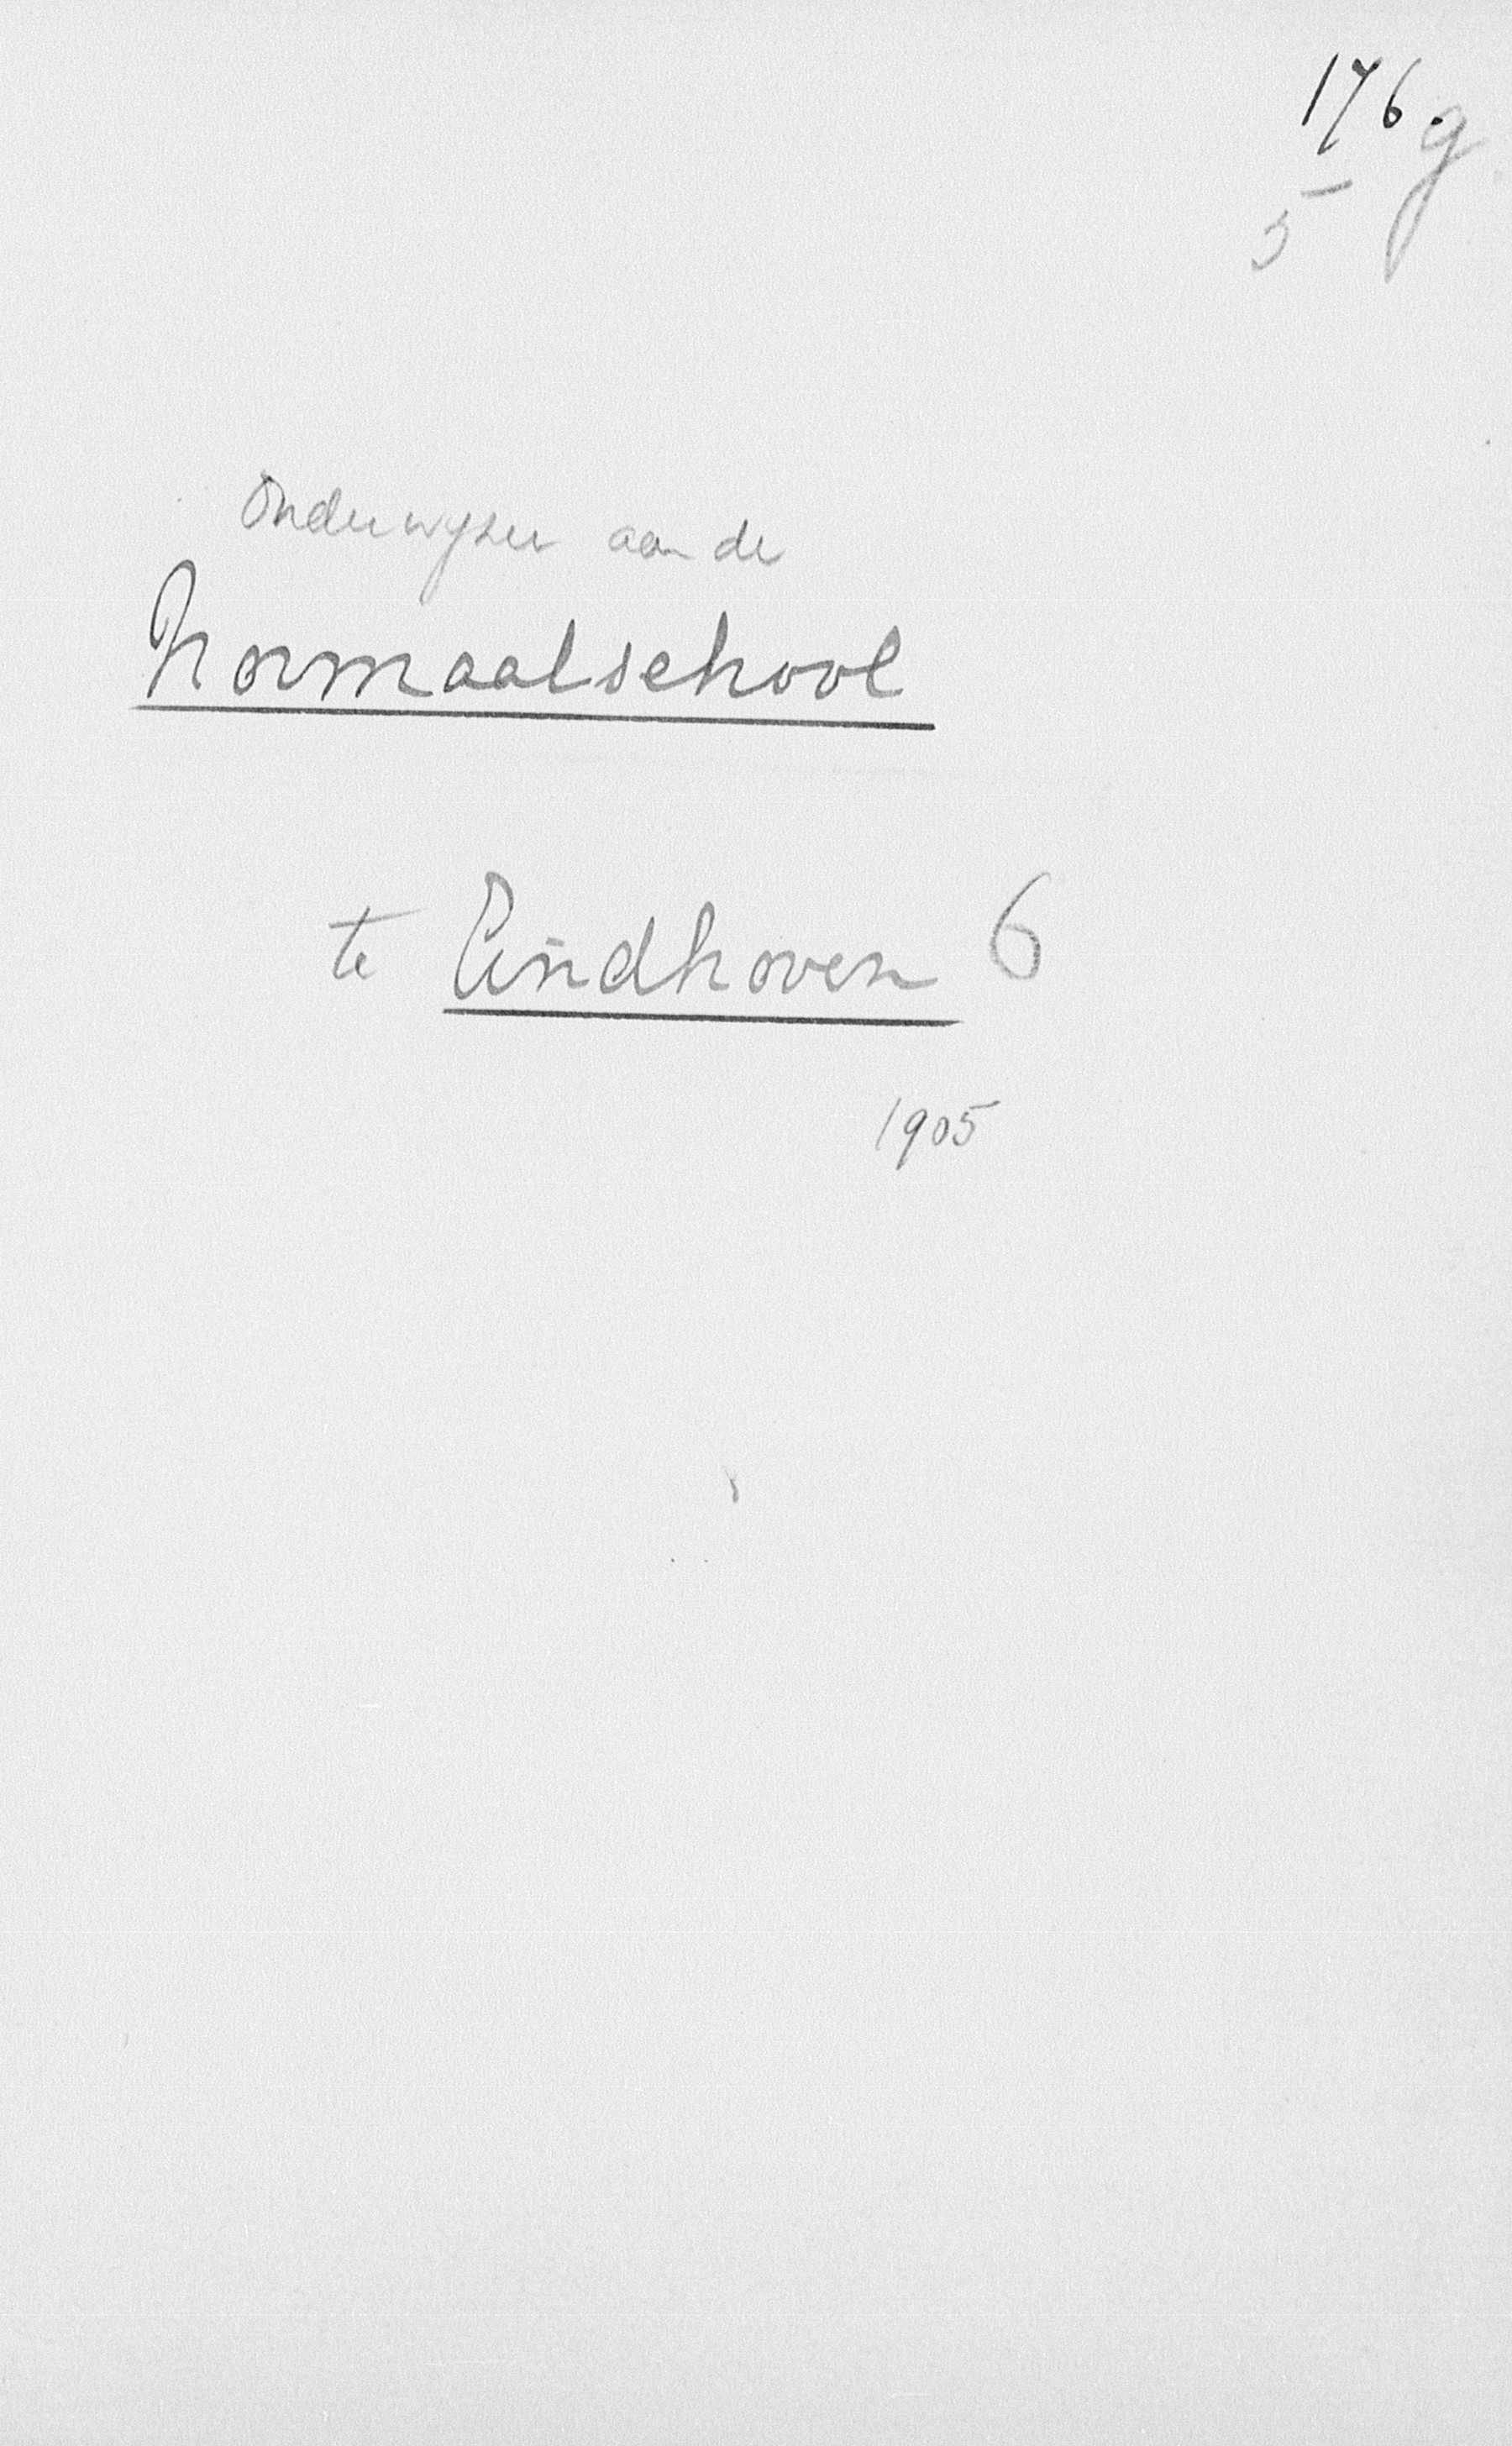 176 g
5
Onderwyzer aan de
Normaalschool
te Eindhoven 6
1905